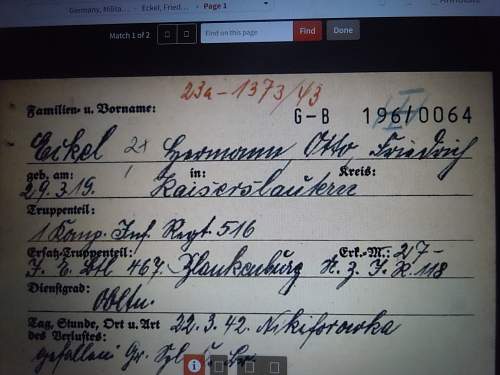 Germany, Milita... › Eckel, Fried... › Page 1
Match 1 of 2 Find on this page Find Done
23a-1373/43
Familien- u. Vorname: G-B 196/0064
Eckel 2x Hermann, Otto, Friedrich
geb. am: in: Kreis:
29.3.19. Kaiserslautern
Truppenteil:
1 Komp. Inf. Regt. 516
Ersatz-Truppenteil: Erk.-M.: 217-
J. E. Btl 467. Blankenburg N. Z. J. R. 118
Dienstgrad:
Obltn.
Tag, Stunde, Ort u. Art 22.3.42. Nikiforowka
des Verlustes:
gefallen Gr. Spl.